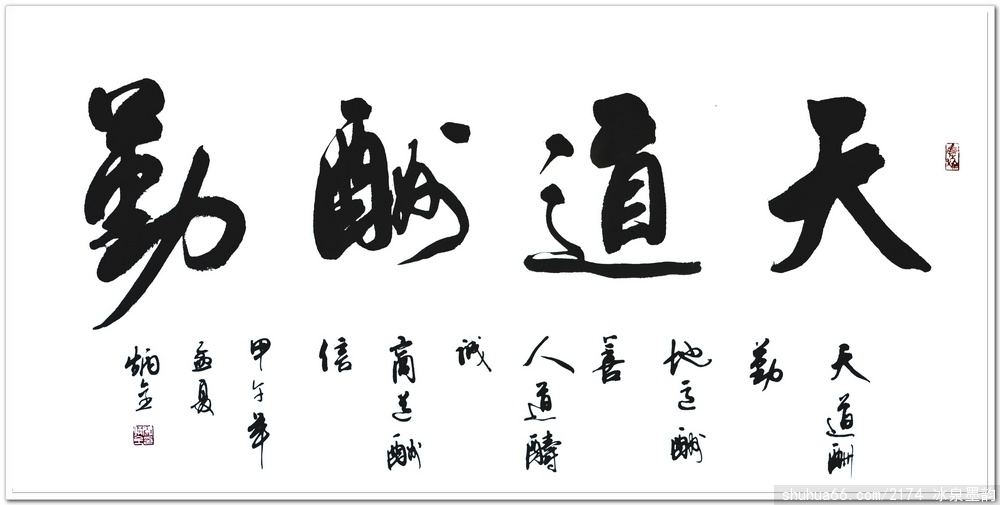 天道酬勤
天道酬
勤
地道酬
善
人道醻
诚
商道酬
信
甲午年
孟夏
炳金
shuhua66.com/2174 冰泉墨韵